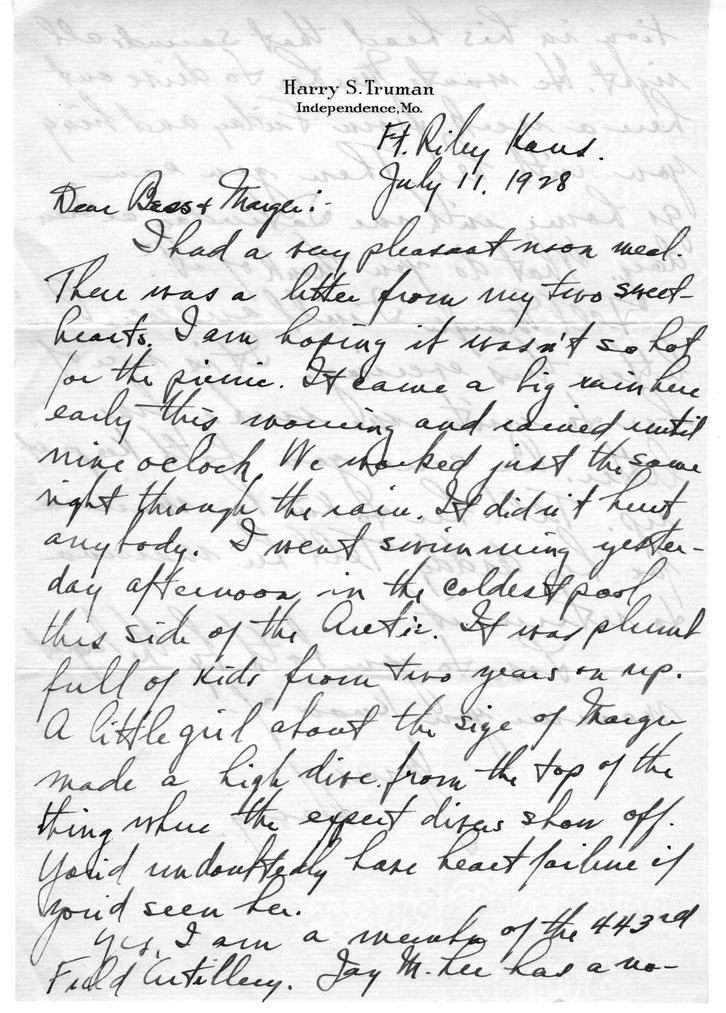 Harry S. Truman
Independence, Mo.
Ft. Riley Kans.
July 11, 1928
Dear Bess & Margie:-
I had a very pleasant noon meal.
There was a letter from my two sweet-
hearts. I am hoping it wasn't so hot
for the picnic. It came a big rain here
early this morning and rained until
nine oclock, We worked just the same
right through the rain. It didn't hurt
anybody. I went swimming yester-
day afternoon in the coldest pool
this side of the Arctic. It was plumb
full of kids from two years on up.
A little girl about the size of Margie
made a high dive from the top of the
thing where the expert divers show off.
You'd undoubtedly have heart failure if
you'd seen her.
Yes, I am a member of the 443rd
Field Artillery. Jay M. Lee has a no-